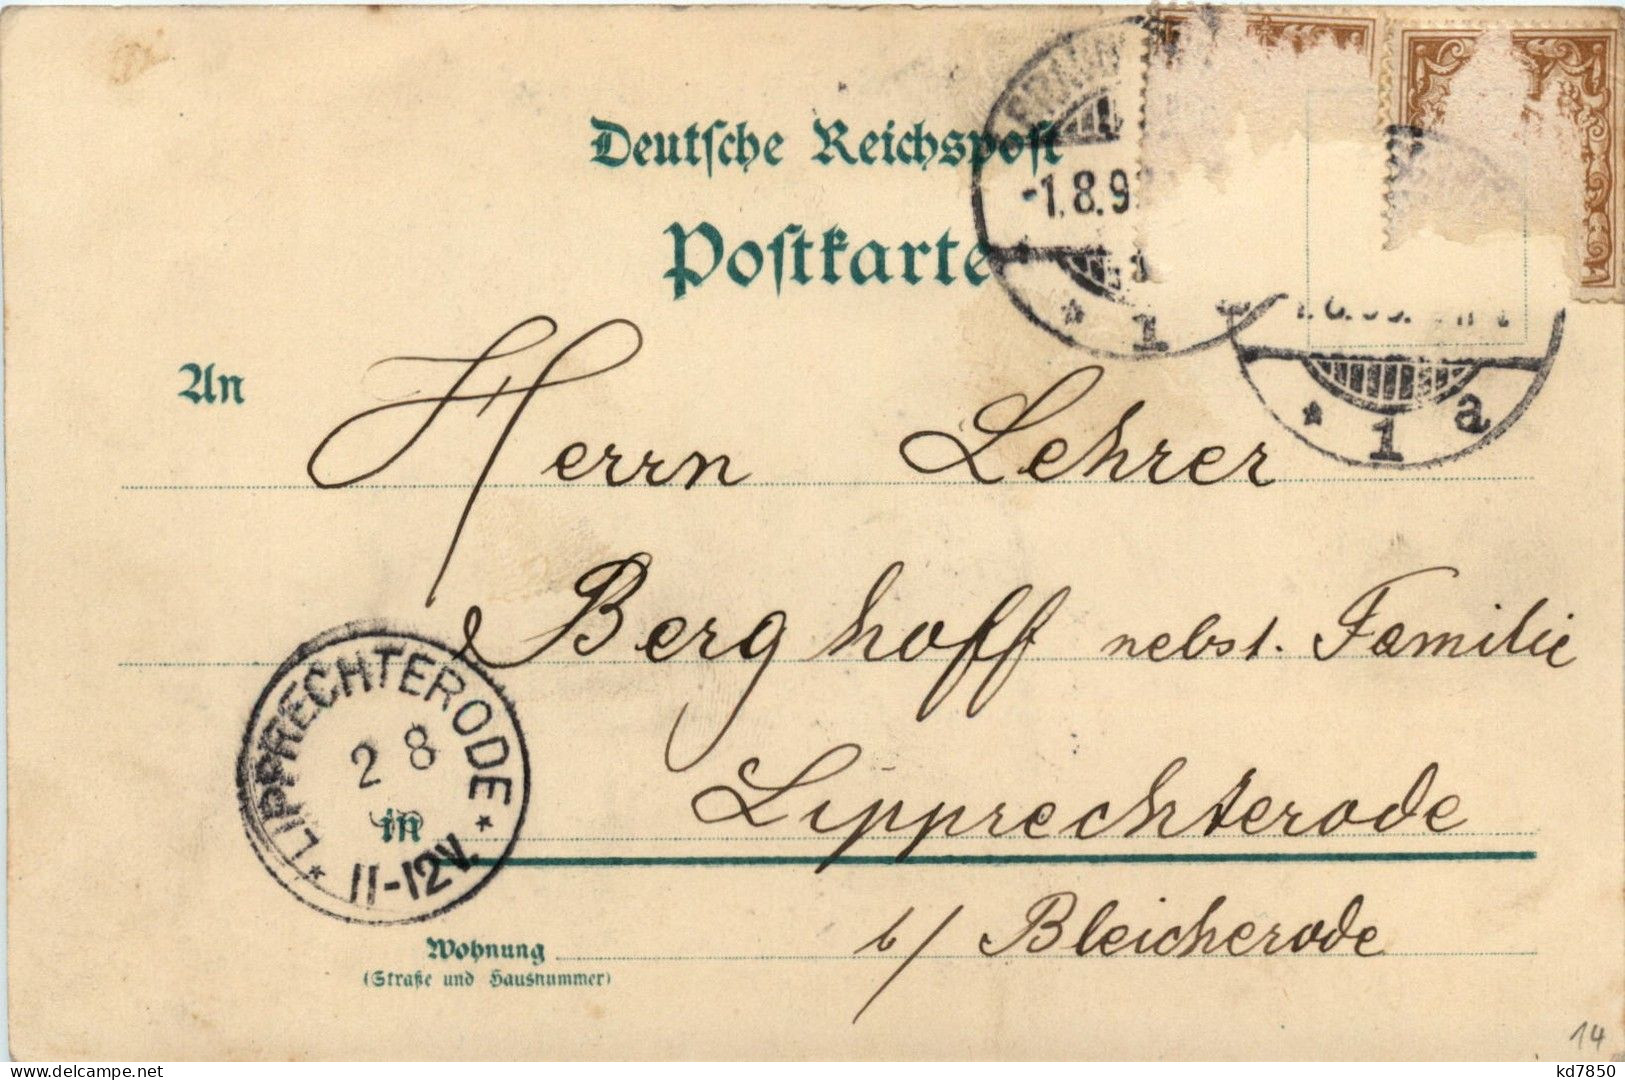 Deutsche Reichspost
Postkarte
-1.8.9
1
1 a
An Herrn Lehrer
Berghoff nebst. Familie
LIPPRECHTERODE
2 8
11-12V.
in Lipprechterode
b/ Bleicherode
Wohnung
(Straße und Hausnummer)
14
www.delcampe.net
kd7850